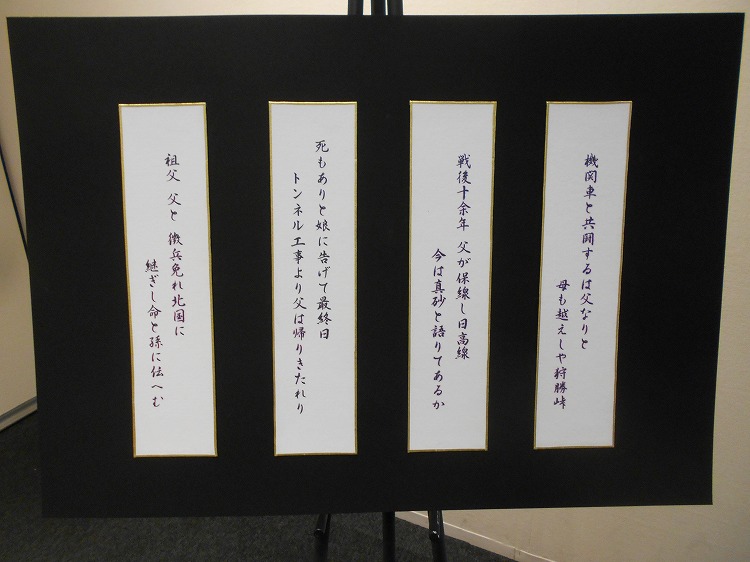 機関車と共闘するは父なりと
母も越えしや狩勝峠
戦後十余年 父が保線し日高線
今は真砂と語りてあるか
死もありと娘に告げて最終日
トンネル工事より父は帰りきたれり
祖父 父と 徴兵免れ北国に
継ぎし命と孫に伝へむ